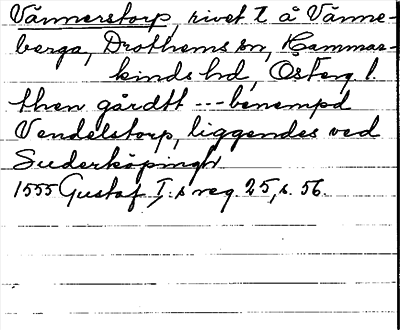 Vännerstorp, rivet t å Vänne-
berga, Drothems sn, Hammar-
kinds hd, Österg. l.
then gårdtt --- benempd
Vendelstorp, liggendes ved
Suderköpingh
1555 Gustaf I:s reg. 25, s. 56.